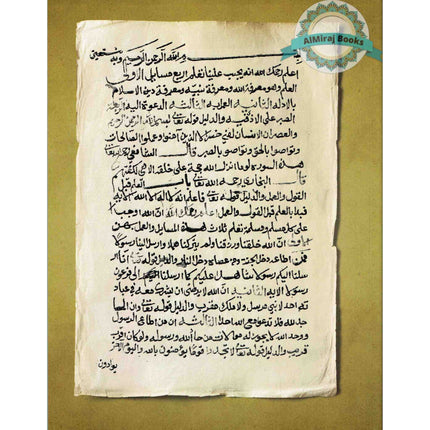 AlMiraj Books
بسم الله الرحمن الرحيم وبه نستعين
اعلم رحمك الله انه يجب علينا تعلم اربع مسايل الاولى
العلم وهو معرفة الله ومعرفة نبيه ومعرفة دين الاسلام
بالادله الثانيه العمل به الثالثة الدعوة اليه الرابعة
الصبر على الاذى فيه والدليل قوله تعا بسم الله الرحمن الرحيم
والعصر ان الانسان لفي خسر الا الذين آمنوا وعملوا الصالحات
وتواصوا بالحق وتواصوا بالصبر قال الشافعي
هذه السوره لوما انزل الله حجة على خلقه الا هي لكفتهم
قال البخاري رحمه الله تعا باب العلم قبل
القول والعمل والدليل قوله تعا فاعلم انه لا اله الا الله الايه
فبدا بالعلم قبل القول والعمل اعلم رحمك الله ان الله اوجب
على كل مسلم ومسلمه تعلم ثلاث هذه المسايل والعمل بهن
ان الله خلقنا ورزقنا ولم يتركنا هملا وارسل الينا رسولا
فمن اطاعه دخل الجنة ومن عصاه دخل النار والدليل قوله تعا انا ار
سلنا اليكم رسولا شاهدا عليكم كما ارسلنا الى فرعون
رسولا الايه الثانيه ان الله لا يرضى ان يشرك معه في عباد
ته احد لا نبي مرسل ولا ملك مقرب والدليل قوله تعا وان المسا
جد لله فلا تدعو مع الله احدا الثالثه ان من اطاع الرسول
ووحد الله لا يجوز له موالات من حاد الله ورسوله ولو كان اقرب
قريب والدليل قوله تعا لا تجد قوما يؤمنون بالله واليوم الاخر
يوادون